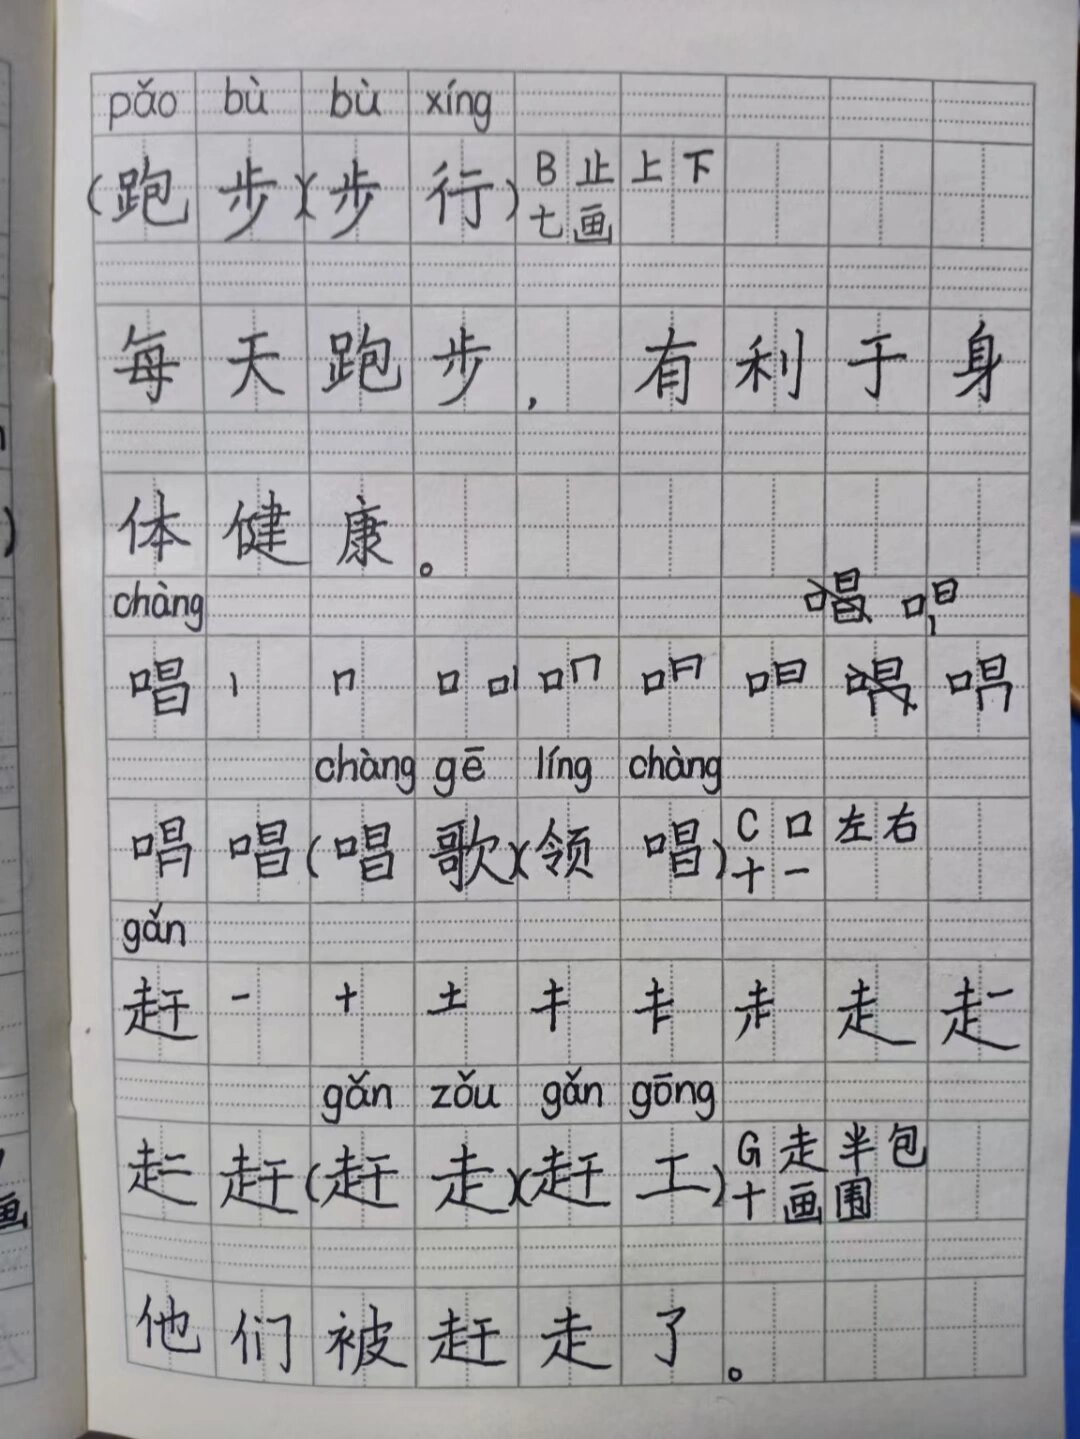 pǎo bù bù xíng
(跑步)(步行) B 止 上下
七画
每天跑步，有利于身
体健康。
chàng
唱 丨 口
chàng gē líng chàng
唱(唱歌)(领唱) C 口 左右
十一
gǎn
赶 一 十 土 走
gǎn zǒu gǎn gōng
赶(赶走)(赶工) G 走 半包
十画 围
他们被赶走了。